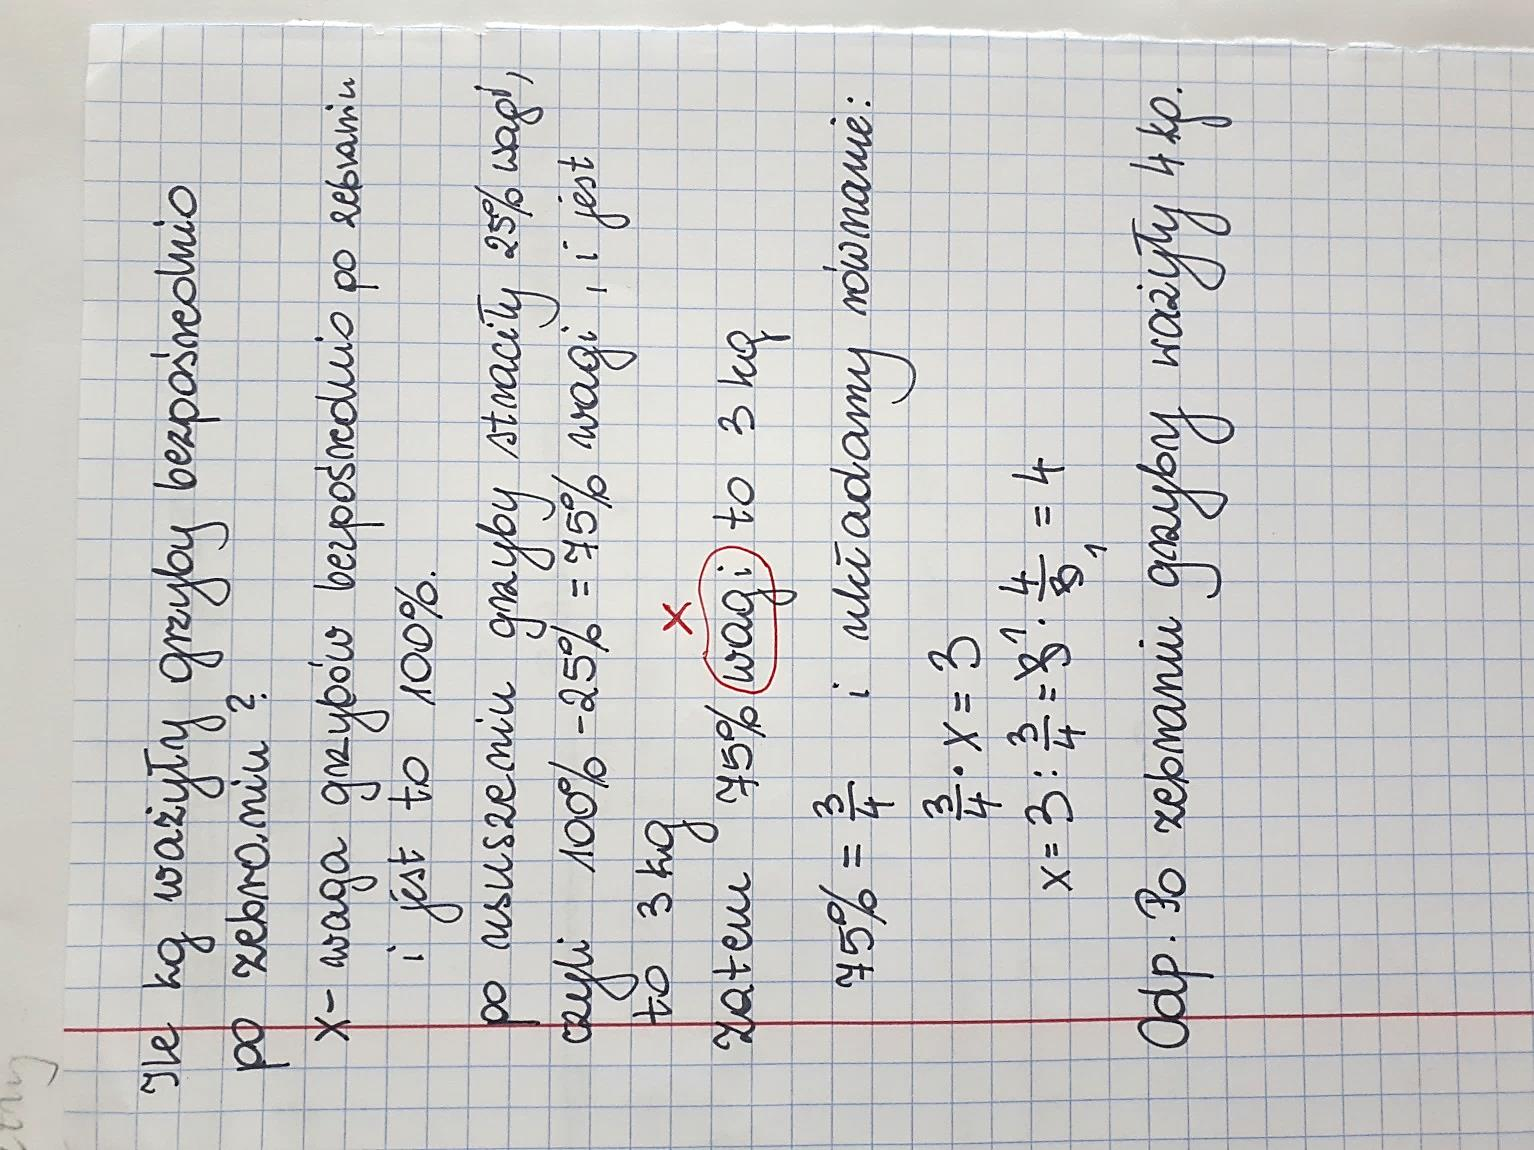 Ile kg ważyły grzyby bezpośrednio
po zebraniu ?
x - waga grzybów bezpośrednio po zebraniu
i jest to 100%.
po ususzeniu grzyby straciły 25% wagi,
czyli 100% - 25% = 75% wagi, i jest
to 3 kg
x
zatem 75% wagi to 3 kg
75% = 3/4 i układamy równanie:
3/4 · x = 3
x = 3 : 3/4 = 3 1 · 4/3 1 = 4
Odp. Po zebraniu grzyby ważyły 4 kg.